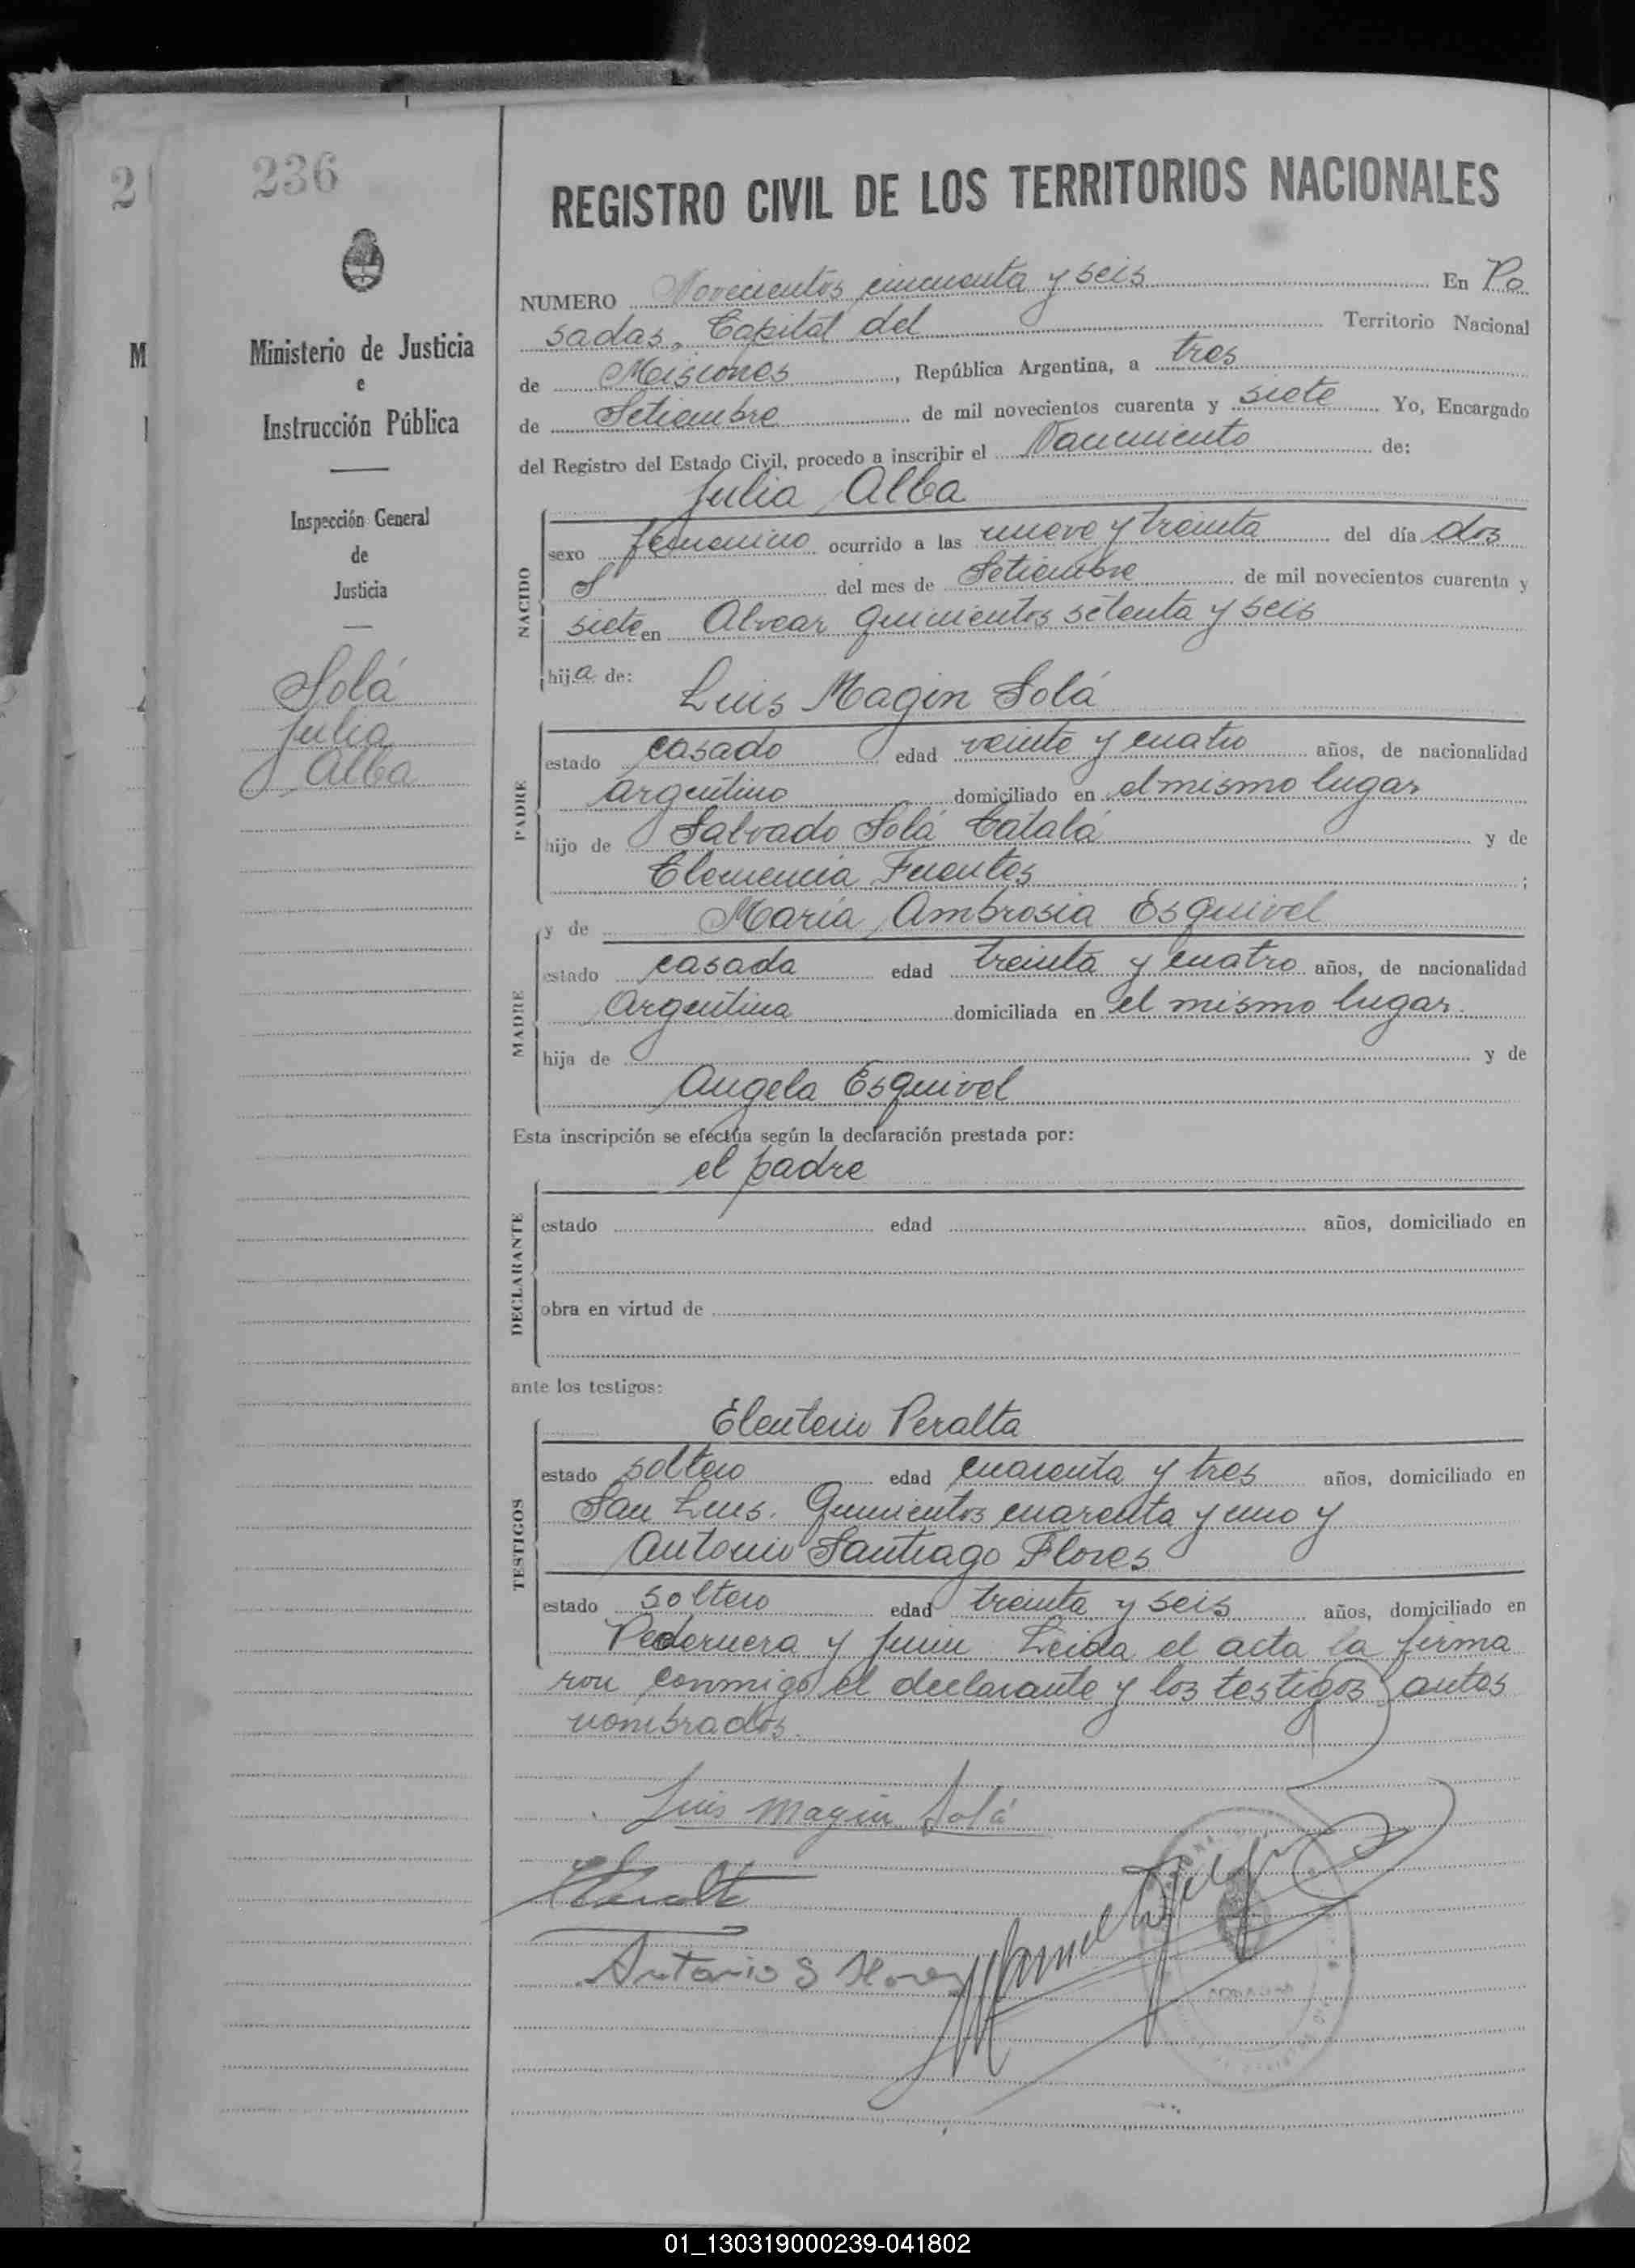 2
236
REGISTRO CIVIL DE LOS TERRITORIOS NACIONALES
M
Ministerio de Justicia
e
Instrucción Pública
Inspección General
de
Justicia
Solá
Julia
Alba
NUMERO Novecientos cincuenta y seis En Po
sadas, Capital del Territorio Nacional
de Misiones, República Argentina, a tres
de Setiembre de mil novecientos cuarenta y siete Yo, Encargado
del Registro del Estado Civil, procedo a inscribir el Nacimiento de:
Julia Alba
NACIDO
sexo femenino ocurrido a las nueve y treinta del día dos
del mes de Setiembre de mil novecientos cuarenta y
siete en Alvear quinientos setenta y seis
hija de:
Luis Magin Solá
PADRE
estado casado edad veinte y cuatro años, de nacionalidad
argentino domiciliado en el mismo lugar
hijo de Salvado Solá Catalá y de
Clemencia Fuentes ;
y de María Ambrosia Esquivel
MADRE
estado casada edad treinta y cuatro años, de nacionalidad
Argentina domiciliada en el mismo lugar.
hija de y de
Angela Esquivel
Esta inscripción se efectúa según la declaración prestada por:
el padre
DECLARANTE
estado edad años, domiciliado en
obra en virtud de
ante los testigos:
Eleuterio Peralta
TESTIGOS
estado soltero edad cuarenta y tres años, domiciliado en
San Luis. Quinientos cuarenta y uno y
Antonio Santiago Flores
estado soltero edad treinta y seis años, domiciliado en
Pedernera y Junin Leida el acta la firma
ron conmigo el declarante y los testigos antes
nombrados.
Luis Magin Solá
Antonio S Flores
Manuel
01_130319000239-041802